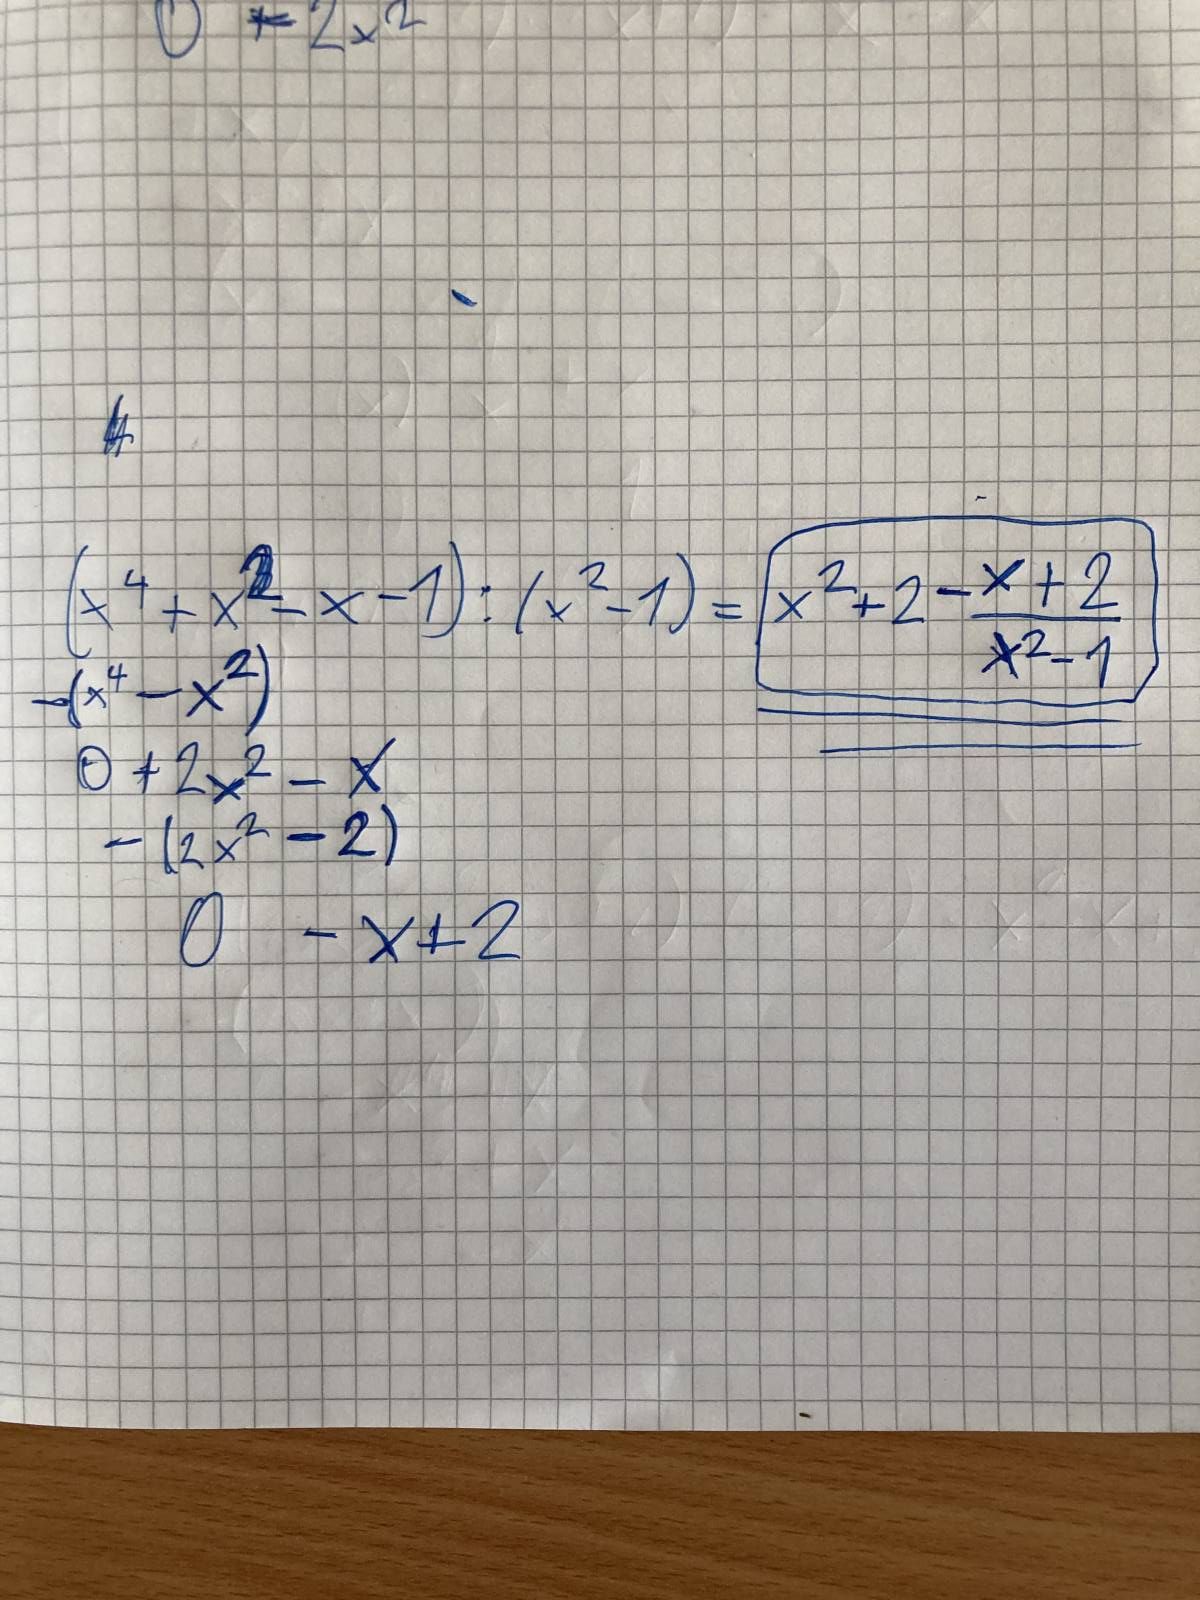 0 + 2x²
(x⁴ + x² - x - 1) : (x² - 1) = x² + 2 - (x + 2)/(x² - 1)
-(x⁴ - x²)
0 + 2x² - x
- (2x² - 2)
0 - x + 2